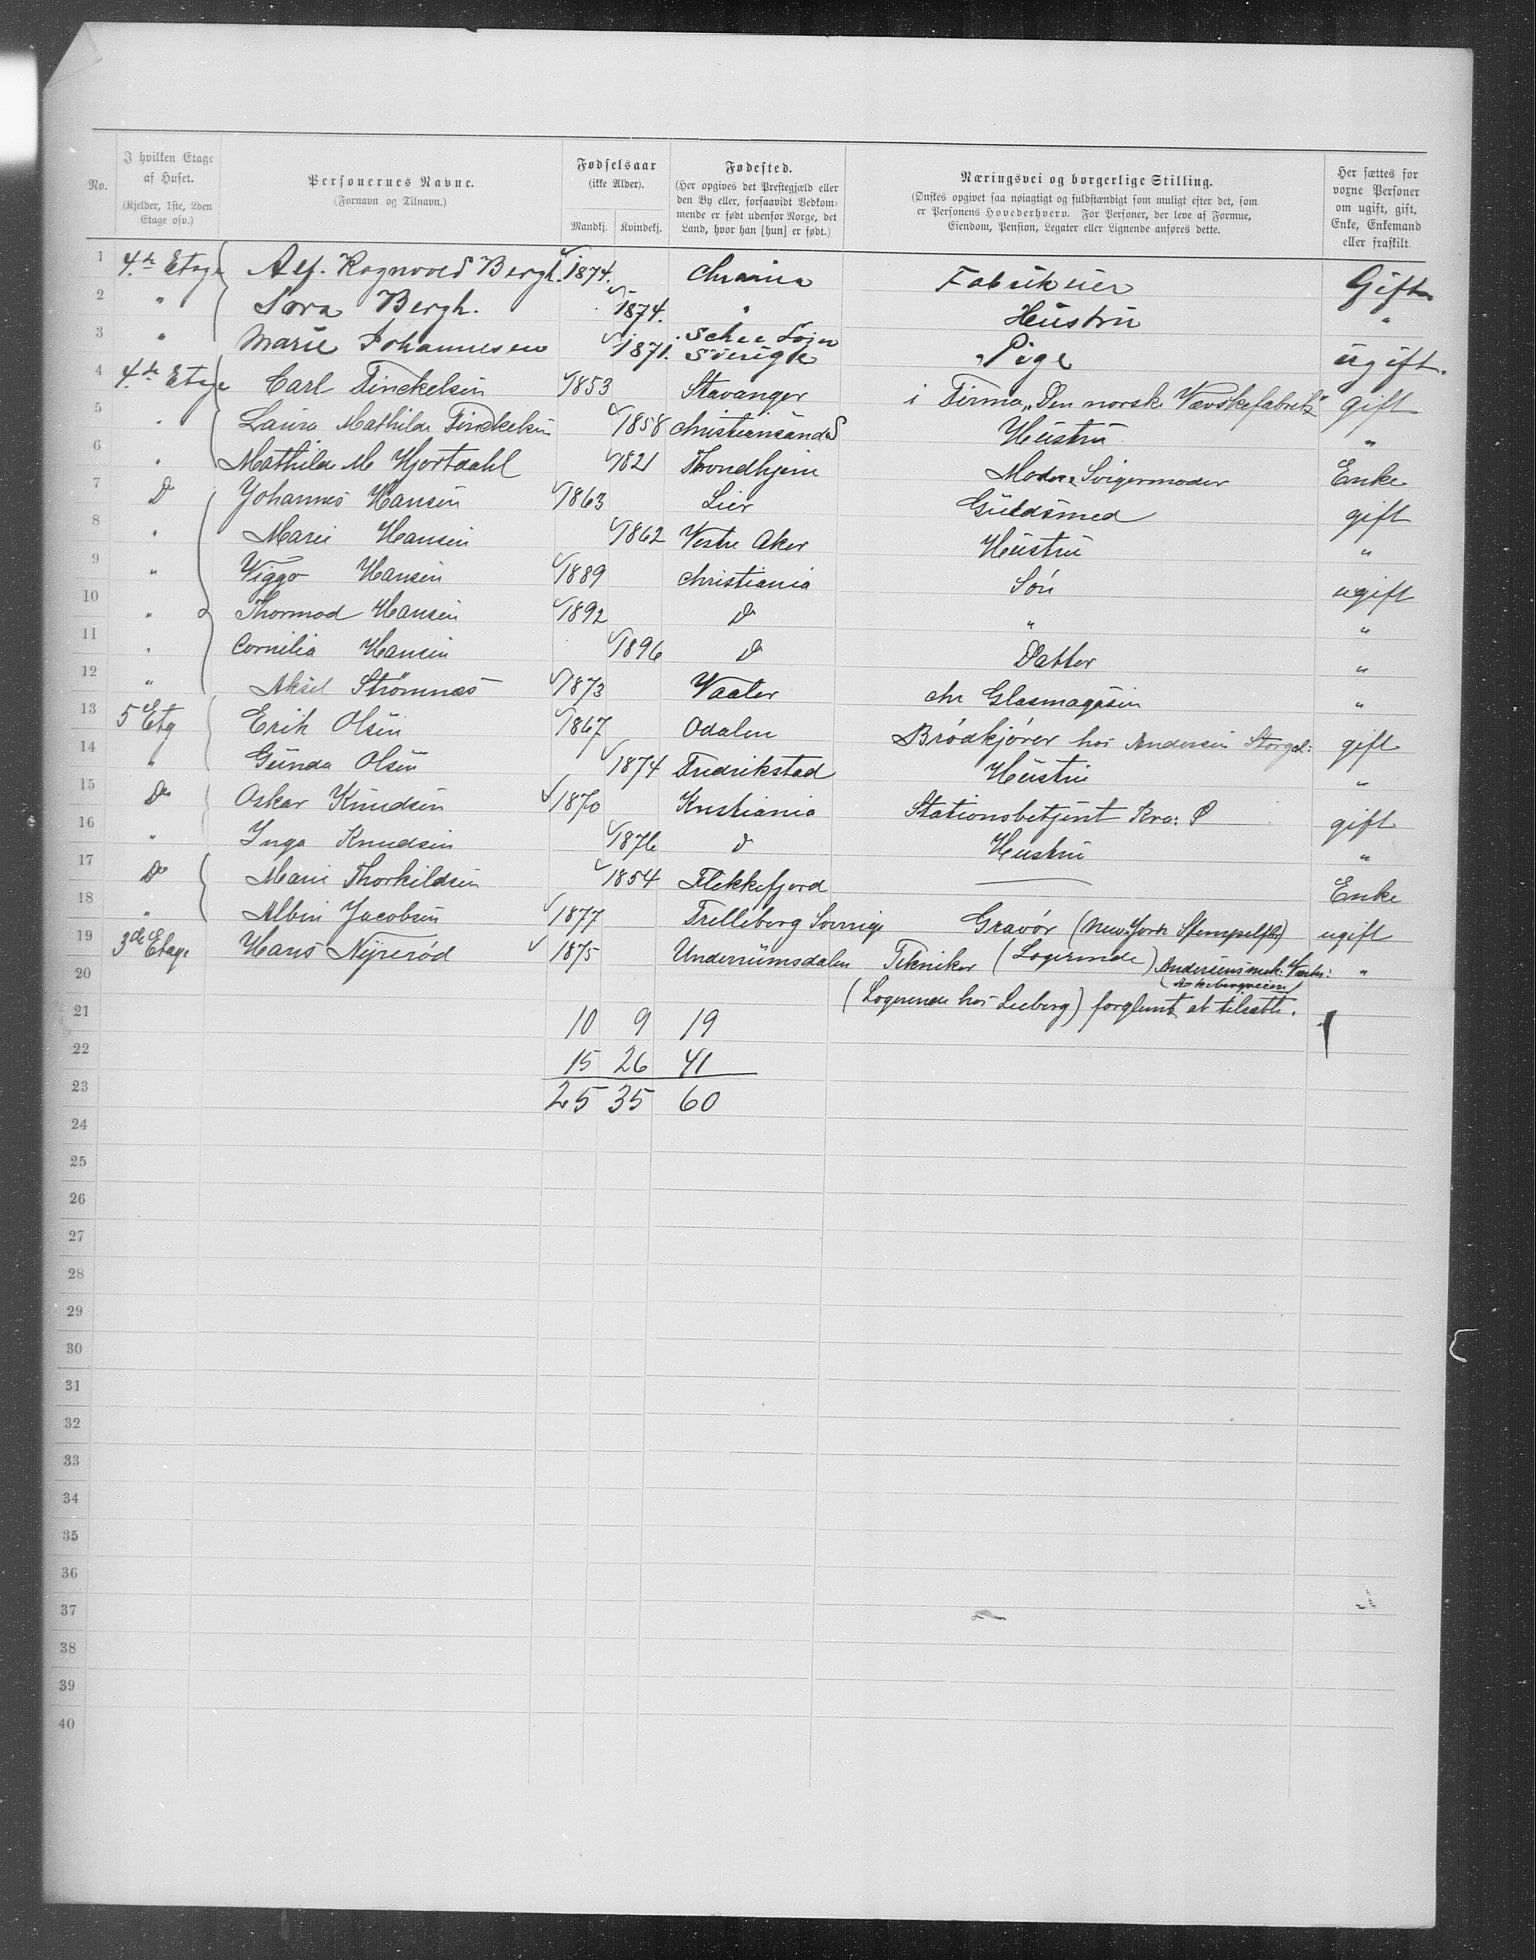 No.
I hvilken Etage af Huset.
(Kjelder, 1ste, 2den Etage osv.)
Personernes Navne.
(Fornavn og Tilnavn.)
Fødselsaar
(ikke Alder).
Mandkj. Kvindekj.
Fødested.
(Her opgives det Prestegjæld eller den By eller, forsaavidt Vedkommende er født udenfor Norge, det Land, hvor han [hun] er født.)
Næringsvei og borgerlige Stilling.
(Ønskes opgivet saa nøiagtigt og fuldstændigt som muligt efter det, som er Personens Hovederhverv. For Personer, der leve af Formue, Eiendom, Pension, Legater eller Lignende anføres dette.
Her sættes for voxne Personer om ugift, gift, Enke, Enkemand eller fraskilt
1 4.de Etage Alf. Ragnvold Bergh. 1874. Chrania Fabrikeier Gift
2 " Nora Bergh. 1874. " Hustru "
3 " Marie Johannesen 1871. Sverige Pige ugift.
4 4.de Etage Carl Finckelsen 1853 Stavanger i Firma "Den norske Vævskefabrik" gift
5 " Laura Mathilde Finckelsen 1858 Christiansand S Hustru "
6 " Mathilde M Hjortdahl 1821 Trondhjem Moder, Svigermoder Enke
7 Do Johannes Hansen 1863 Lier Guldsmed gift
8 " Marie Hansen 1862 Vestre Aker Hustru "
9 " Viggo Hansen 1889 Christiania Søn ugift
10 " Thormod Hansen 1892 Do " "
11 " Cornilia Hansen 1896 Do Datter "
12 " Aksel Strömnæs 1873 Vaaler Chr Glasmagasin "
13 5 Etg Erik Olsen 1867 Odalen Brødkjører hos Andersen Storgd: gift
14 " Gunda Olsen 1874 Fredrikstad Hustru "
15 Do Oskar Knudsen 1870 Kristiania Stationsbetjent Kra: Ø gift
16 " Inga Knudsen 1876 Do Hustru "
17 Do Marie Thorkildsen 1854 Flekkefjord — Enke
18 " Albin Jacobsen 1877 Trelleborg Sverrige Gravør (New York Stempelfb) ugift
19 3de Etage Hans Nyrerød 1875 Underrumsdalen Tekniker (Logerende) Andersens mek: Værks: "
20 (Logerende hos Lieberg) forglemt at tilsætte.
21 10 9 19
22 15 26 41
23 25 35 60
24
25
26
27
28
29
30
31
32
33
34
35
36
37
38
39
40